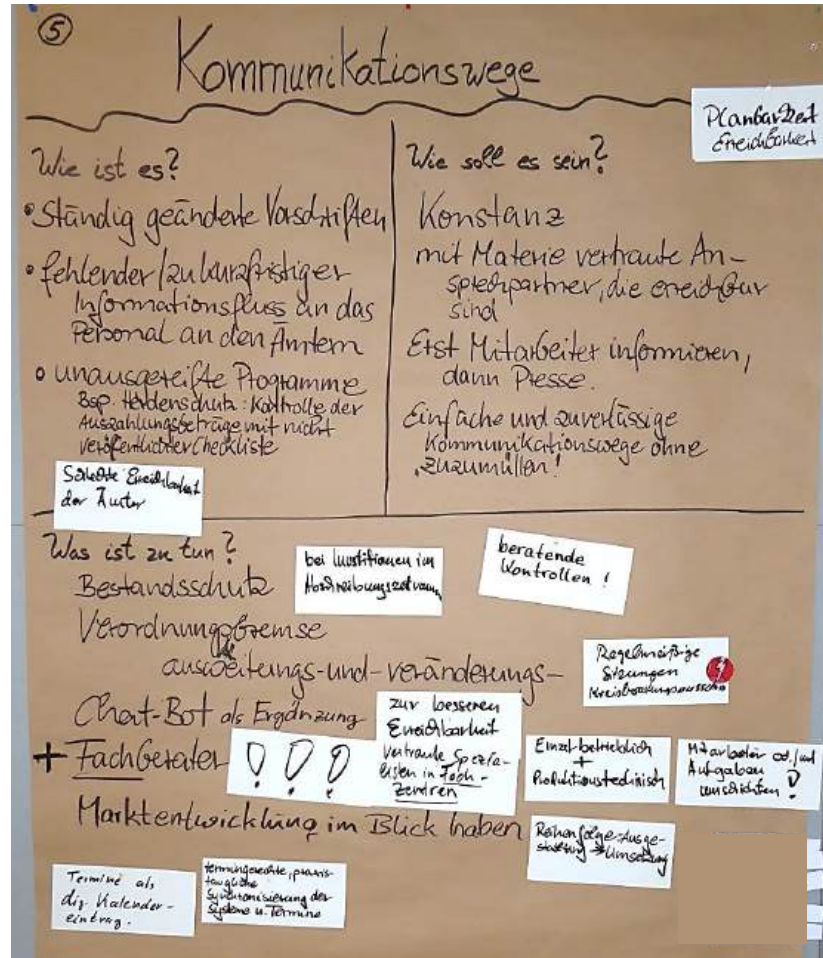 5
Kommunikationswege
Planbarkeit
Erreichbarkeit
Wie ist es?
• Ständig geänderte Vorschriften
• fehlender/zu kurzfristiger
Informationsfluss an das
Personal an den Ämtern
• unausgereifte Programme
Bsp. Herdenschutz: Kontrolle der
Auszahlungsbeträge mit nicht
veröffentlichter Checkliste
Schlechte Erreichbarkeit
der Ämter
Wie soll es sein?
Konstanz
mit Materie vertraute An-
sprechpartner, die erreichbar
sind
Erst Mitarbeiter informieren,
dann Presse.
Einfache und zuverlässige
Kommunikationswege ohne
"Zuzumüllen!
Was ist zu tun?
Bestandsschutz
bei Investitionen im
Abschreibungszeitraum
beratende
Kontrollen!
Verordnungsbremse
ausweitungs-und-veränderungs-
Regelmäßige
Sitzungen
Chat-Bot als Ergänzung
zur besseren
Erreichbarkeit
vertraute Spezia-
listen in Fach-
zentren
+ Fachberater
! ! !
Einzelbetrieblich
+
Produktionstechnisch
Mitarbeiter od./und
Aufgaben
umschichten!
Marktentwicklung im Blick haben
Reihenfolge: Ausge-
staltung → Umsetzung
Termine als
dig. Kalender-
eintrag.
termingerechte, praxis-
taugliche
Synchronisierung der
Systeme u. Termine